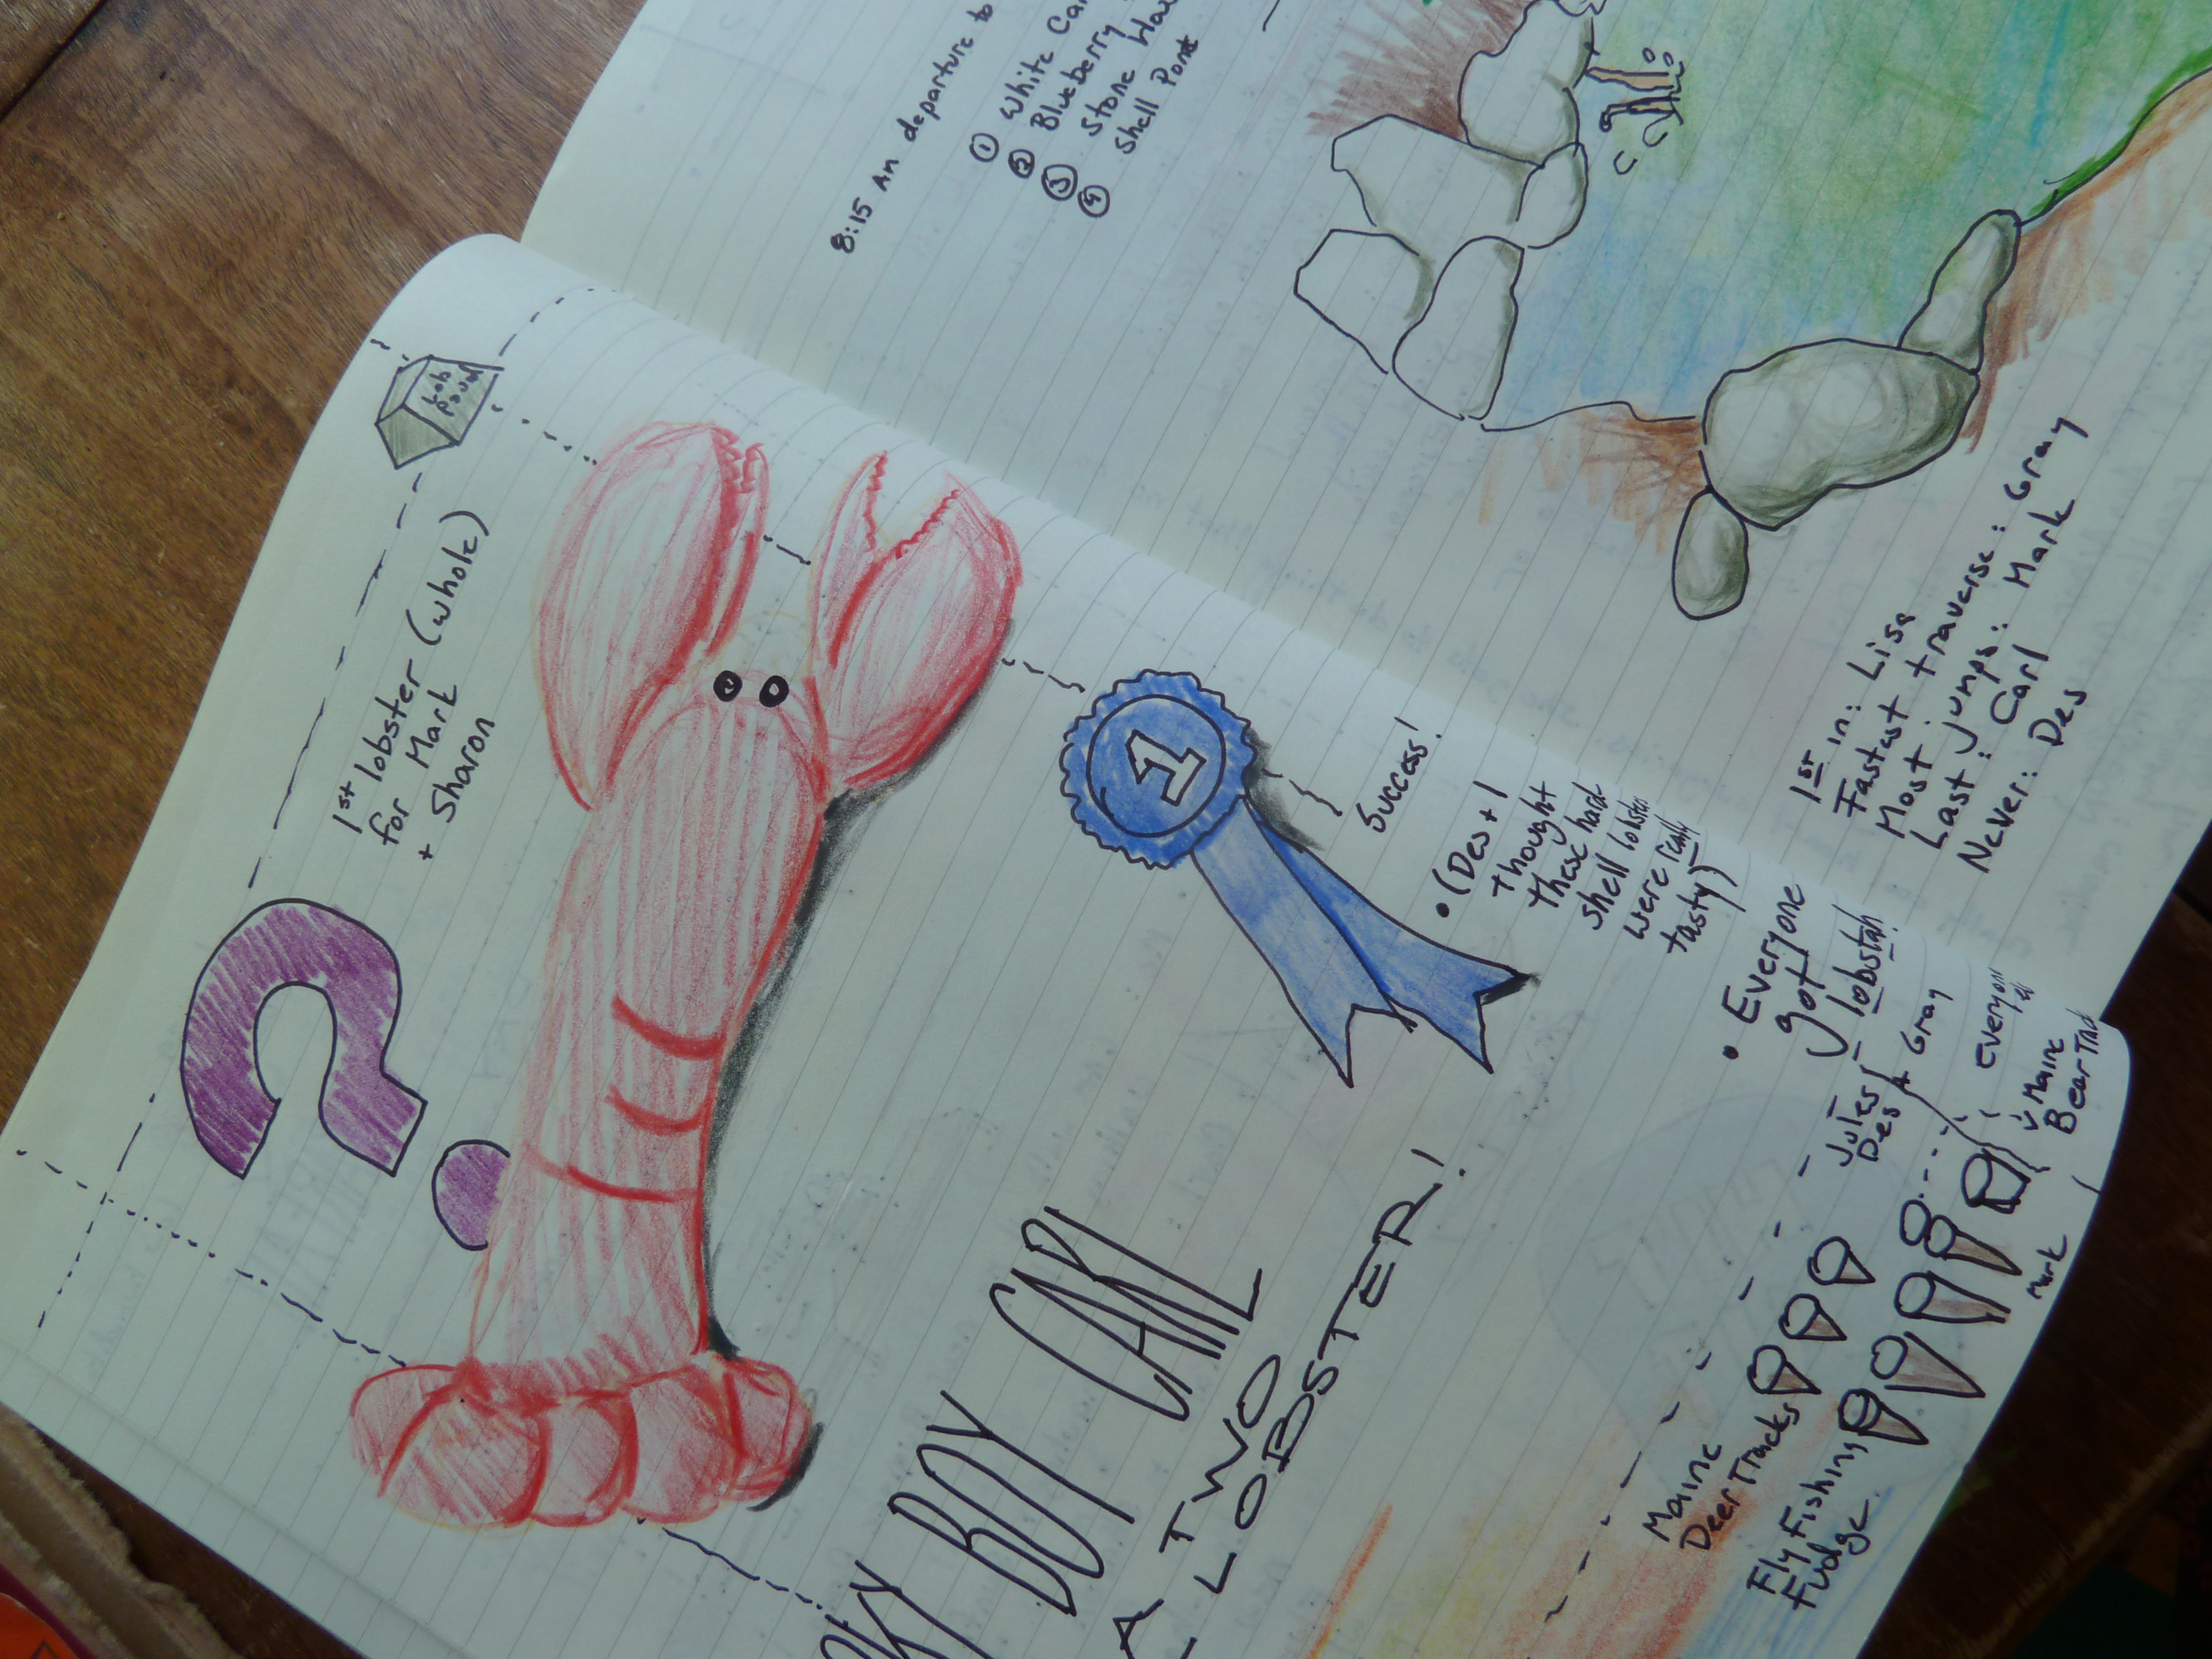 8:15 AM departure to
① White
② Blueberry
③ Stone
④ Shell Point
1st in: Lisa
Fastest traverse: Gray
Most jumps: Mark
Last: Carl
Never: Des
Lob
Pound
1st lobster (whole)
for Mark
+ Sharon
?
1
Success!
• (Des + I
thought
these hard
shell lobster
were really
tasty)
• Everyone
got
lobstah!
BOY CARL
A TWO
LOBSTER!
Jules
Des
+ Gray
Everyone
Maine
Bear
Mark
Maine
Deer Tracks
Fly Fishing
Fudge.